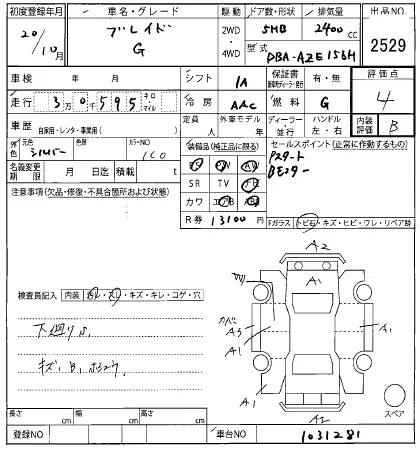 初度登録年月 車名・グレード 駆動 ドア数・形状 排気量 出品NO.
20/10月 ブレイド G 2WD・4WD 5HB 2400cc 2529
型式 DBA-AZE156H
車検 年 月 シフト IA 保証書 有・無 評価点
走行 3万0千595 キロ・マイル 冷房 AAC 燃料 G 4
車歴 自家用・レンタ・事業用( ) 定員 人 外車モデル 年 ディーラー・並行 ハンドル 左・右 内装評価 B
外色 元色 シルバー 色替 カラーNO 1C0 装備品(純正品に限る) セールスポイント(正常に作動するもの)
Pスタート
Bモニター
名義変更期限 月 日迄 積載 t SR TV ナビ
注意事項(欠品・修復・不具合箇所および状態) カワ エアB
R券 13100円 Fガラス トビ石・キズ・ヒビ・ワレ・リペア跡
A2
A1
検査員記入 内装 汚レ・スレ・キズ・キレ・コゲ・穴
下廻りS カバー A3 A1
A1
キズ、B、ホコウ
A1 スペア
A2
長さ cm 幅 cm 高さ cm
登録NO 車台NO 1031281